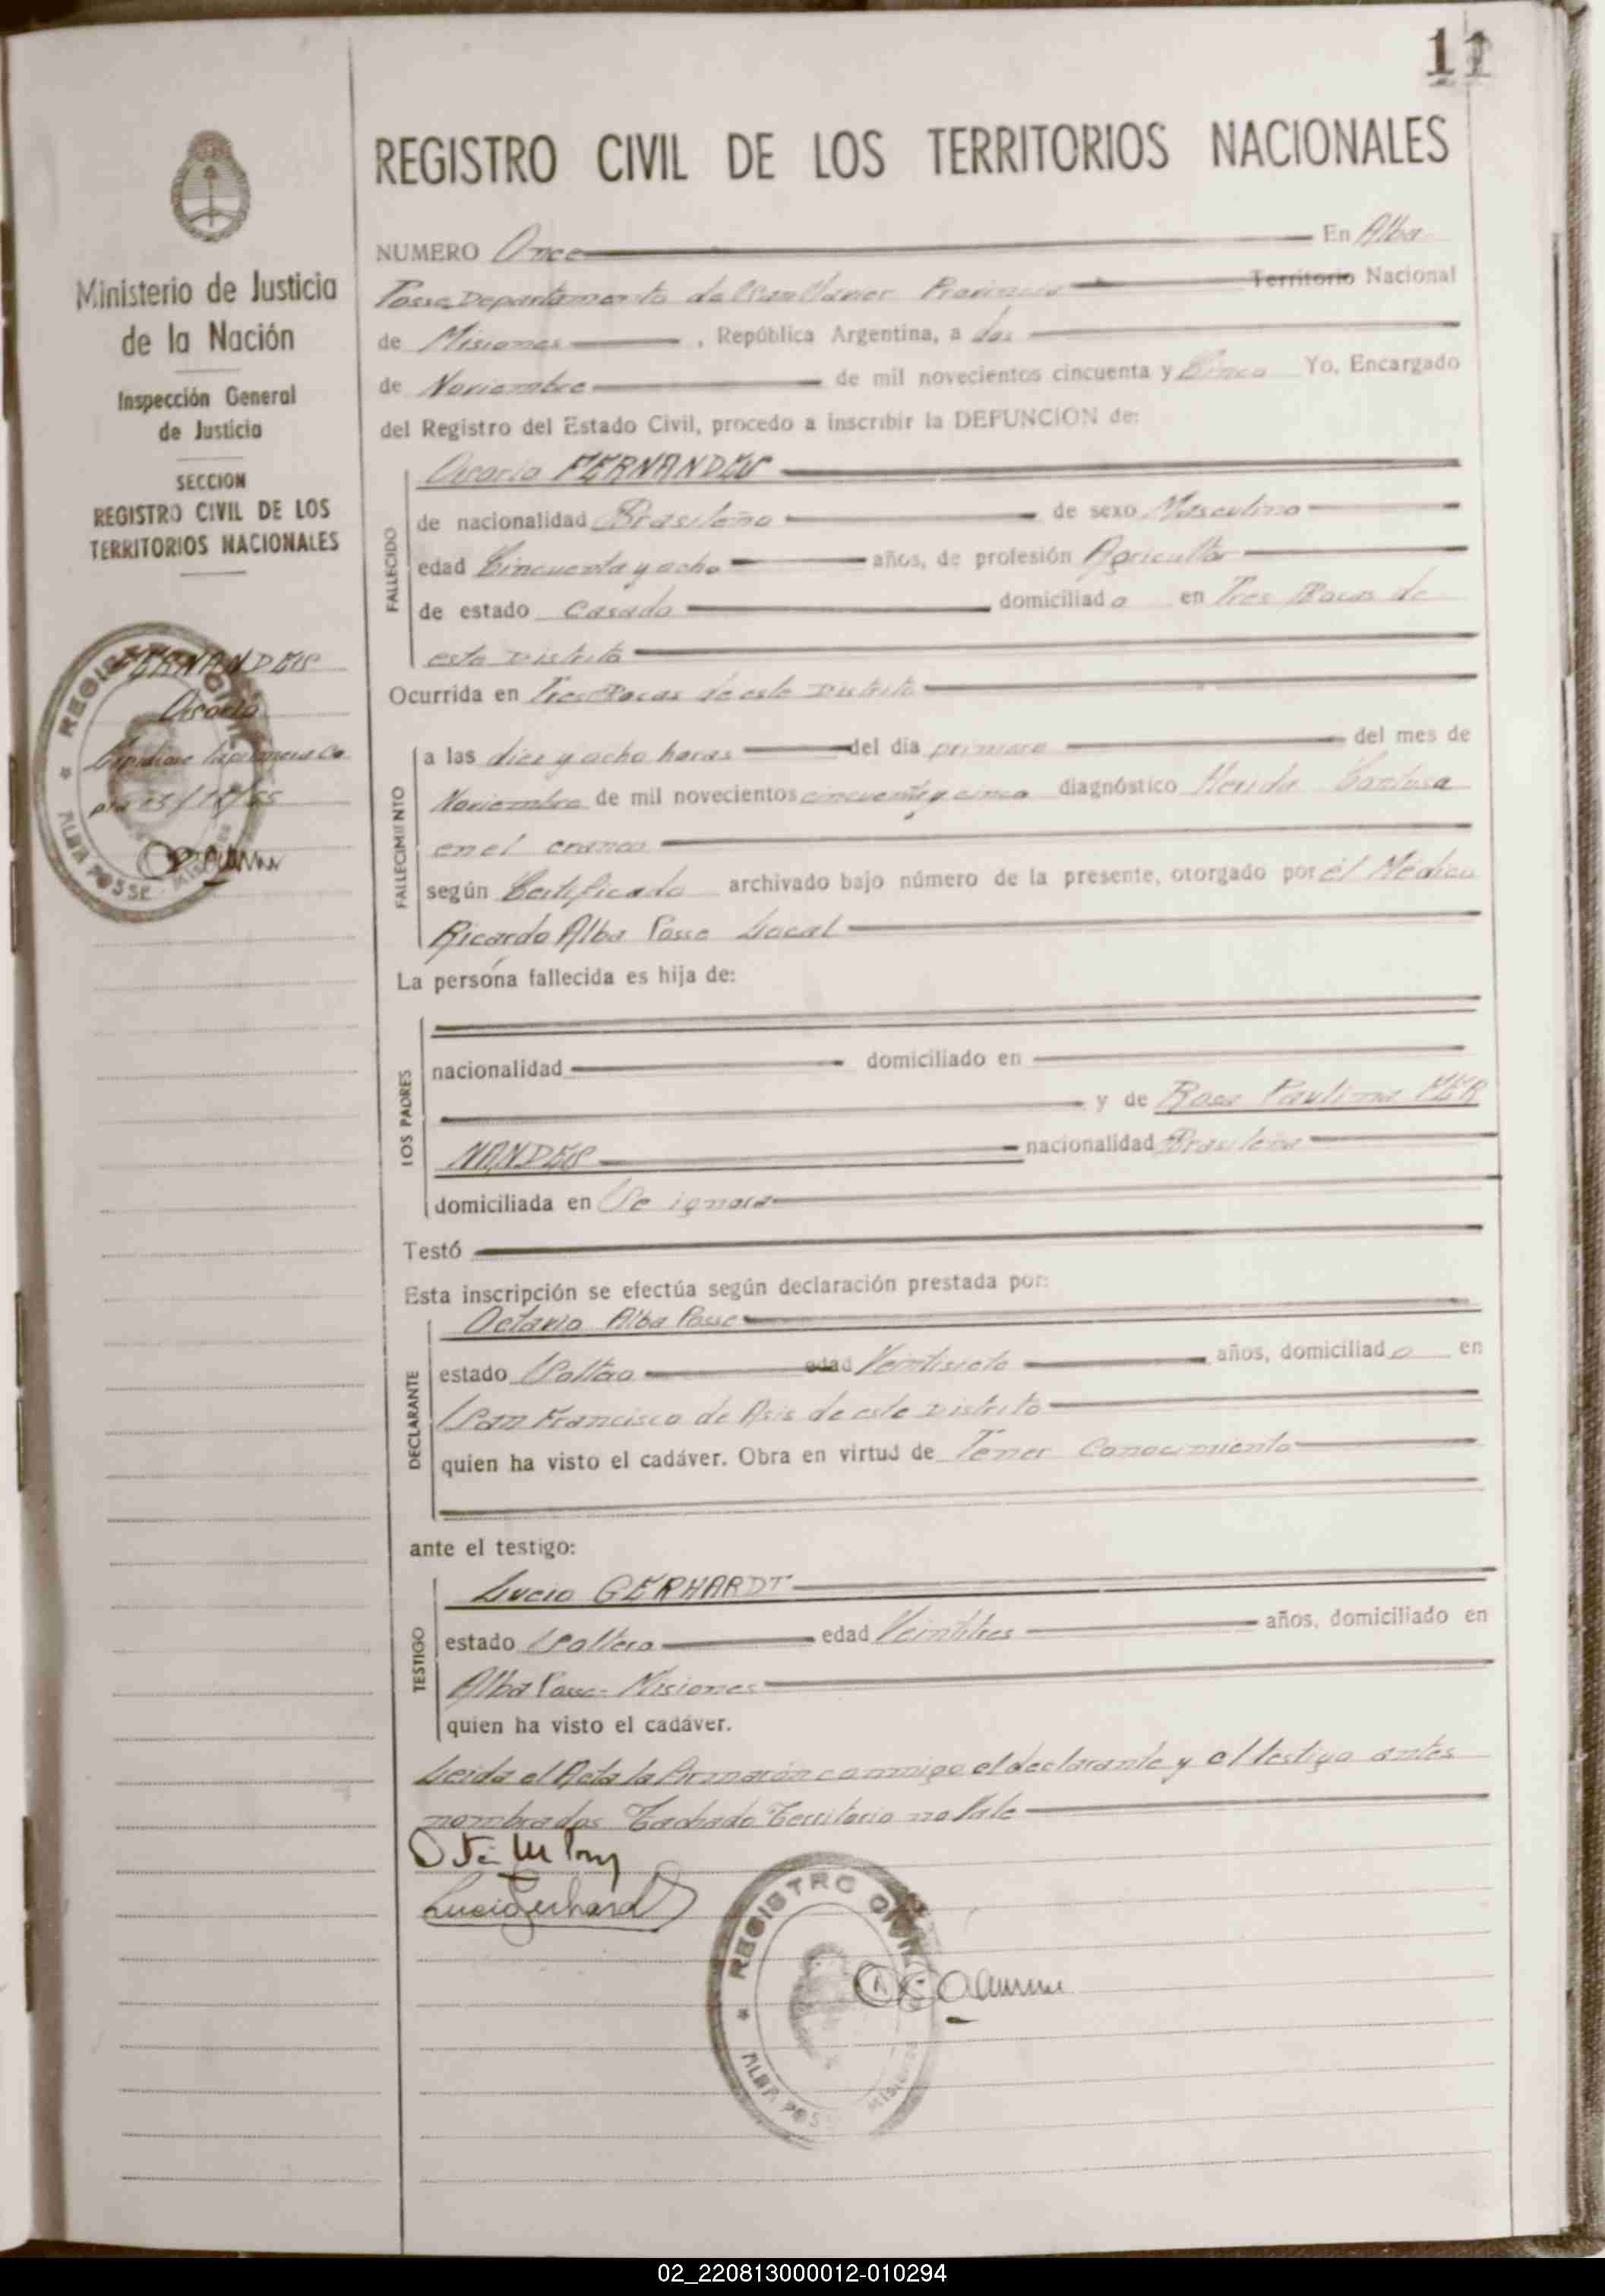 11
REGISTRO CIVIL DE LOS TERRITORIOS NACIONALES
Ministerio de Justicia
de la Nación
Inspección General
de Justicia
SECCION
REGISTRO CIVIL DE LOS
TERRITORIOS NACIONALES
FERNANDES
Osorio
REGISTRO CIVIL
ALBA POSSE - MISIONES
NUMERO Once En Alba
Posse Departamento de Provincia Territorio Nacional
de Misiones , República Argentina, a dos
de Noviembre de mil novecientos cincuenta y Cinco Yo, Encargado
del Registro del Estado Civil, procedo a inscribir la DEFUNCION de:
FALLECIDO
Osorio FERNANDES
de nacionalidad Brasileña de sexo Masculino
edad Cincuenta y ocho años, de profesión Agricultor
de estado Casado domiciliado en Tres Bocas de
este Distrito
Ocurrida en Tres Bocas de este Distrito
FALLECIMIENTO
a las diez y ocho horas del día primero del mes de
Noviembre de mil novecientos cincuenta y cinco diagnóstico Herida Contusa
en el craneo
según Certificado archivado bajo número de la presente, otorgado por el Médico
Ricardo Alba Posse Local
La persona fallecida es hija de:
LOS PADRES
nacionalidad domiciliado en
y de Rosa Paulina FER
NANDES nacionalidad Brasileña
domiciliada en Se ignora
Testó
Esta inscripción se efectúa según declaración prestada por:
DECLARANTE
Octavio Alba Posse
estado Soltero edad Veintisiete años, domiciliado en
San Francisco de Asis de este Distrito
quien ha visto el cadáver. Obra en virtud de Tener Conocimiento
ante el testigo:
TESTIGO
Lucio GERHARDT
estado Soltero edad Veintitres años, domiciliado en
Alba Posse - Misiones
quien ha visto el cadáver.
Leida el Acta la firmarón conmigo el declarante y el testigo antes
nombrados Tachado Territorio no Vale
Lucio Gerhardt
REGISTRO CIVIL
ALBA POSSE MISIONES
02_220813000012-010294